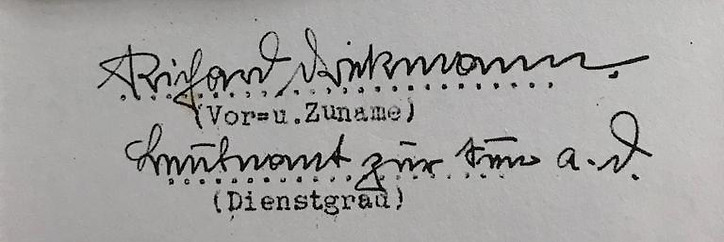 Richard Dirkmann.
(Vor=u.Zuname)
Leutnant zur See a. D.
(Dienstgrad)